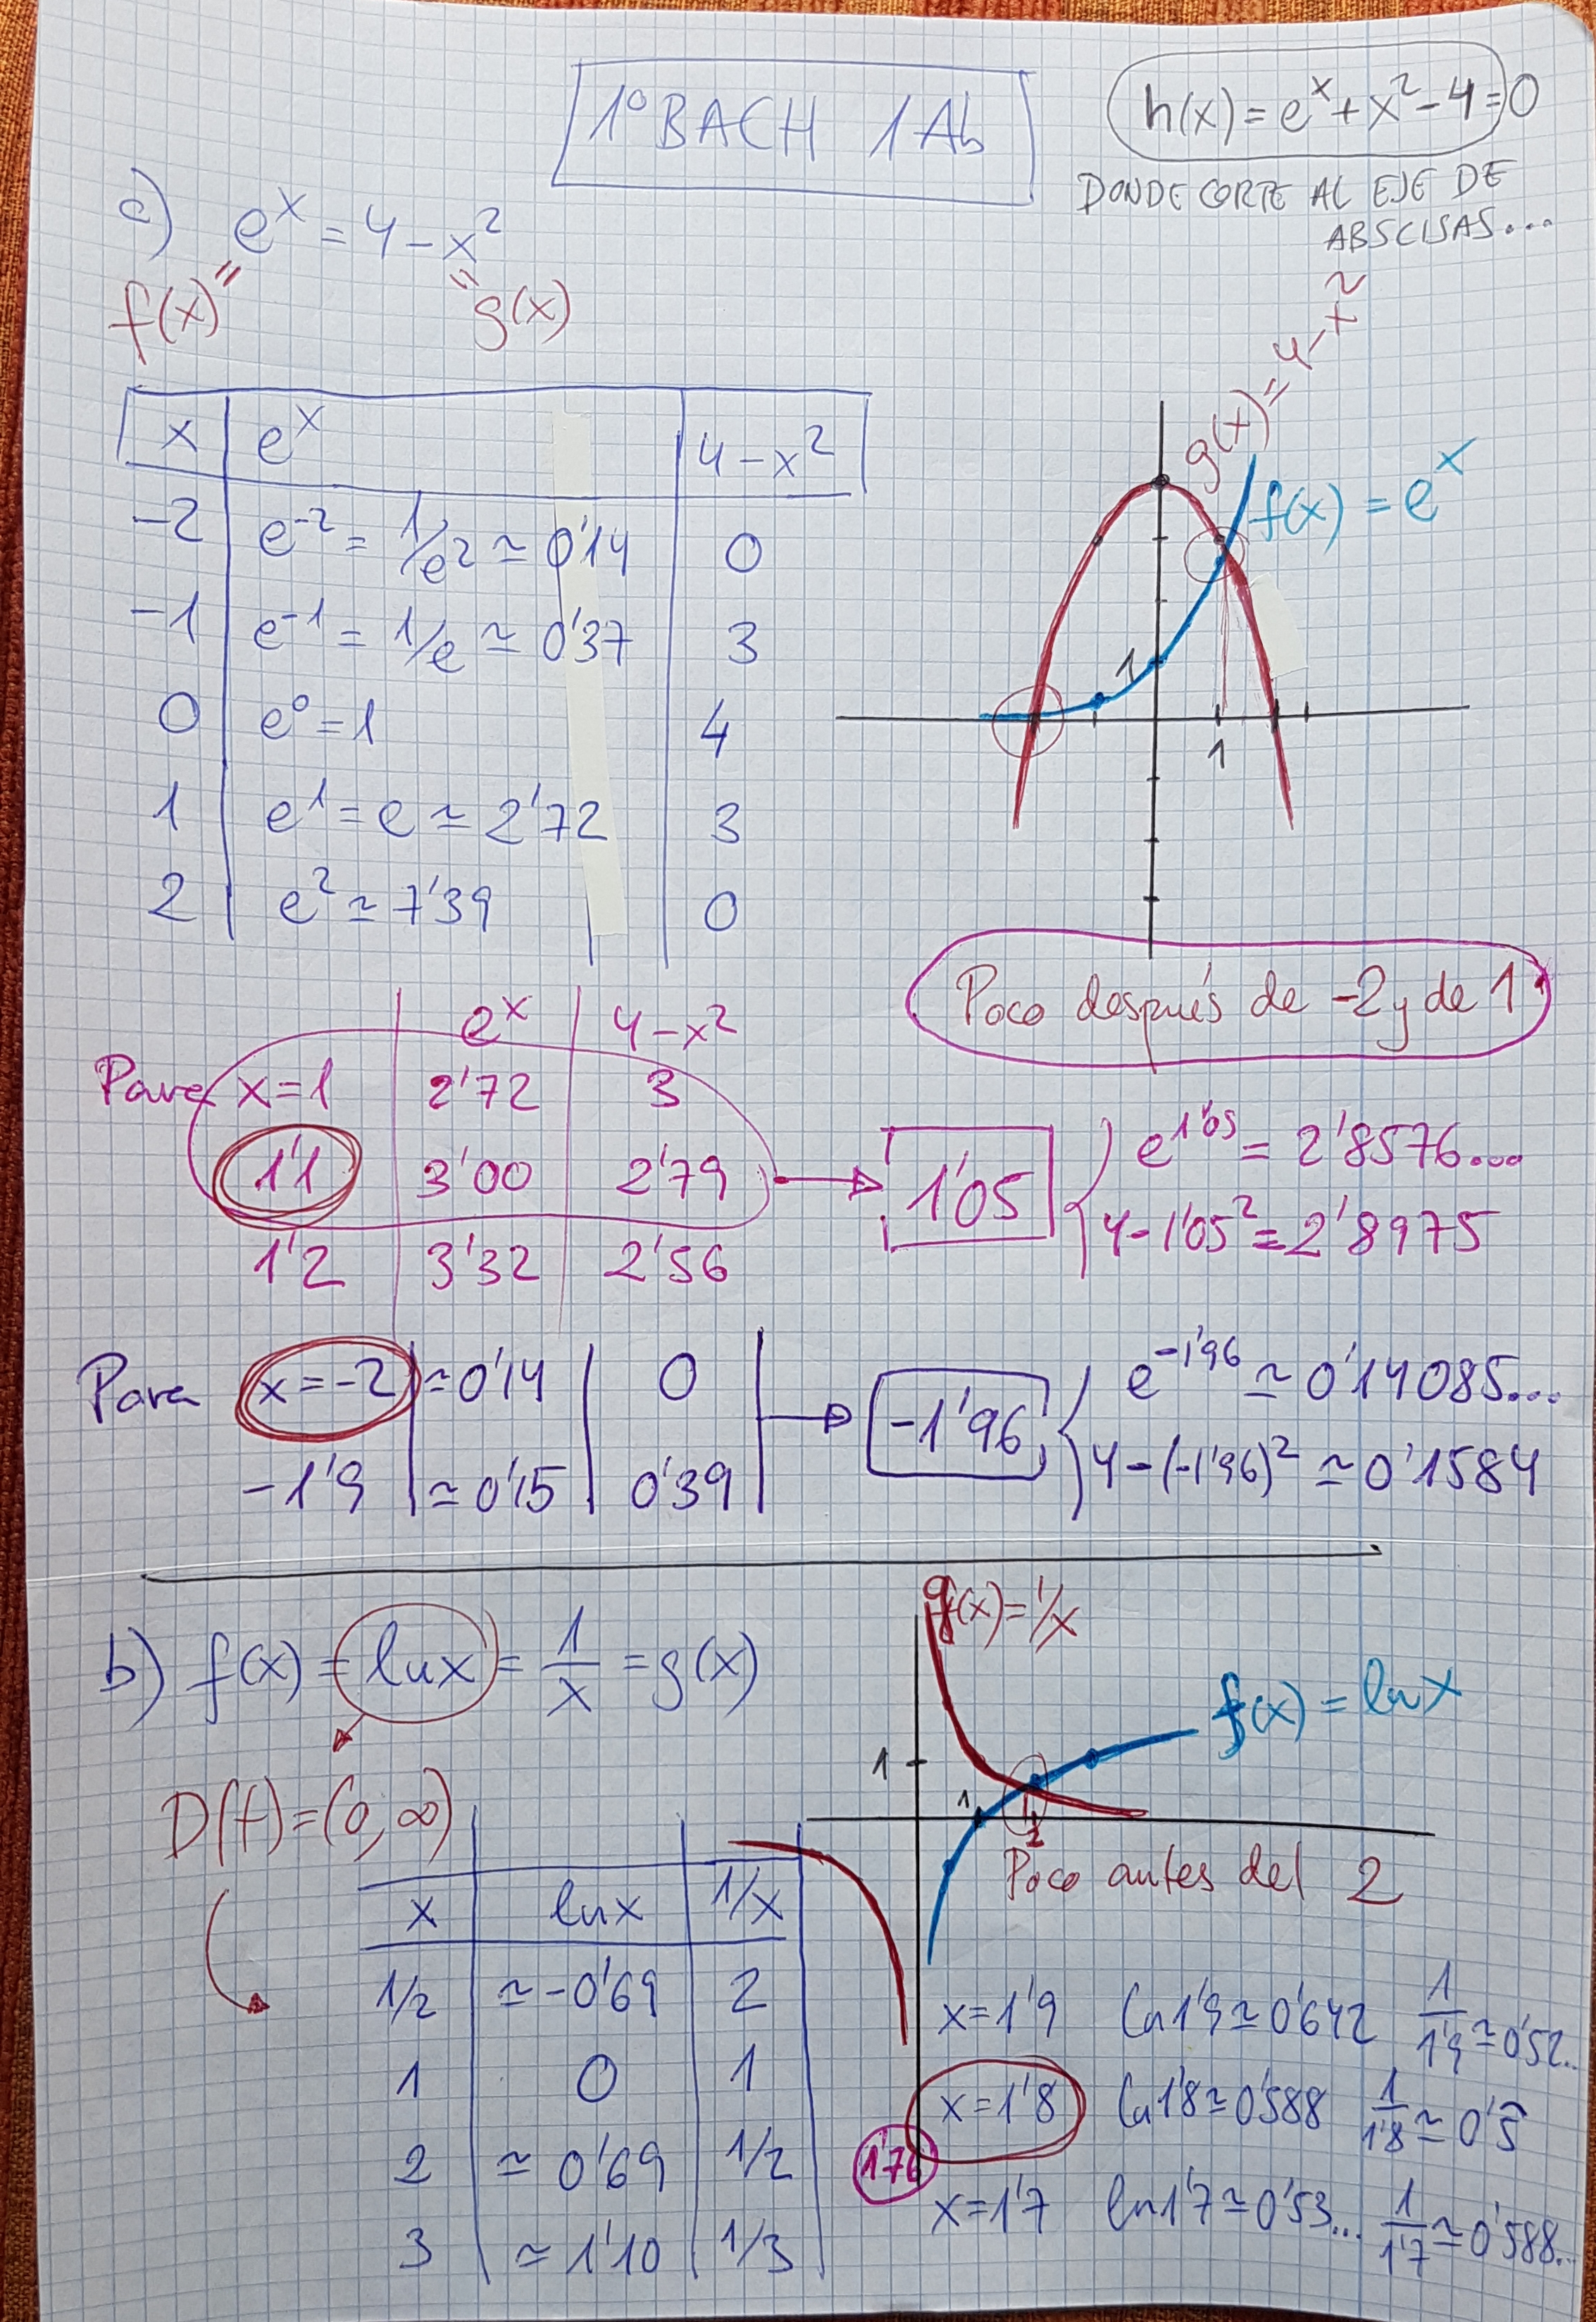 1º BACH 1Ab
h(x) = e^x + x² - 4 = 0
DONDE CORTE AL EJE DE
ABSCISAS...
c) e^x = 4 - x²
f(x) = = g(x)
x | e^x | 4 - x²
-2 | e^-2 = 1/e² ≃ 0'14 | 0
-1 | e^-1 = 1/e ≃ 0'37 | 3
0 | e^0 = 1 | 4
1 | e^1 = e ≃ 2'72 | 3
2 | e² ≃ 7'39 | 0
g(x) = 4 - x²
f(x) = e^x
1
1
Poco después de -2 y de 1
e^x | 4 - x²
Para x = 1 | 2'72 | 3
1'1 | 3'00 | 2'79
1'2 | 3'32 | 2'56
1'05
e^1'05 = 2'8576...
4 - 1'05² = 2'8975
Para x = -2 | ≃ 0'14 | 0
-1'9 | ≃ 0'15 | 0'39
-1'96
e^-1'96 ≃ 0'14085...
4 - (-1'96)² ≃ 0'1584
b) f(x) = ln x = 1/x = g(x)
D(f) = (0, ∞)
g(x) = 1/x
f(x) = ln x
1
1
2
Poco antes del 2
x | ln x | 1/x
1/2 | ≃ -0'69 | 2
1 | 0 | 1
2 | ≃ 0'69 | 1/2
3 | ≃ 1'10 | 1/3
x = 1'9 ln 1'9 ≃ 0'642 1/1'9 ≃ 0'52...
x = 1'8 ln 1'8 ≃ 0'588 1/1'8 ≃ 0'5̂
1'76
x = 1'7 ln 1'7 ≃ 0'53... 1/1'7 ≃ 0'588...